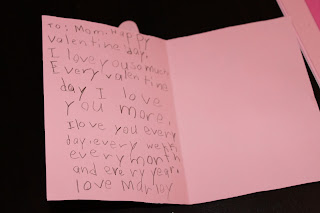 To: Mom: Happy
valentines day.
I love you so much
Every valentine
day I love
you more.
I love you every
day, every week,
every month
and every year.
love Marley